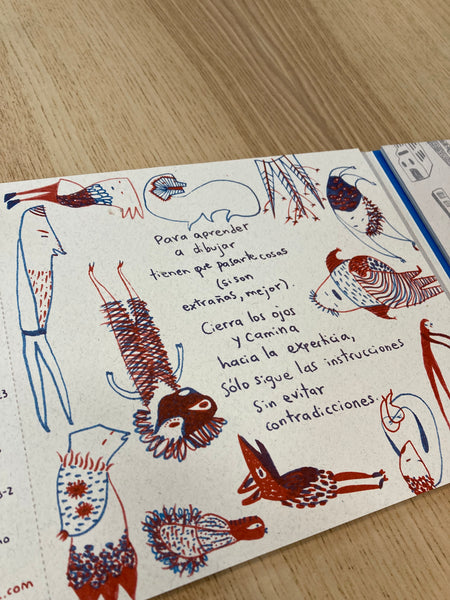 Para aprender
a dibujar
tienen que pasarte cosas
(si son
extraños, mejor).
Cierra los ojos
y camina
hacia la experticia,
sólo sigue las instrucciones
sin evitar
contradicciones.
3
-2
.com